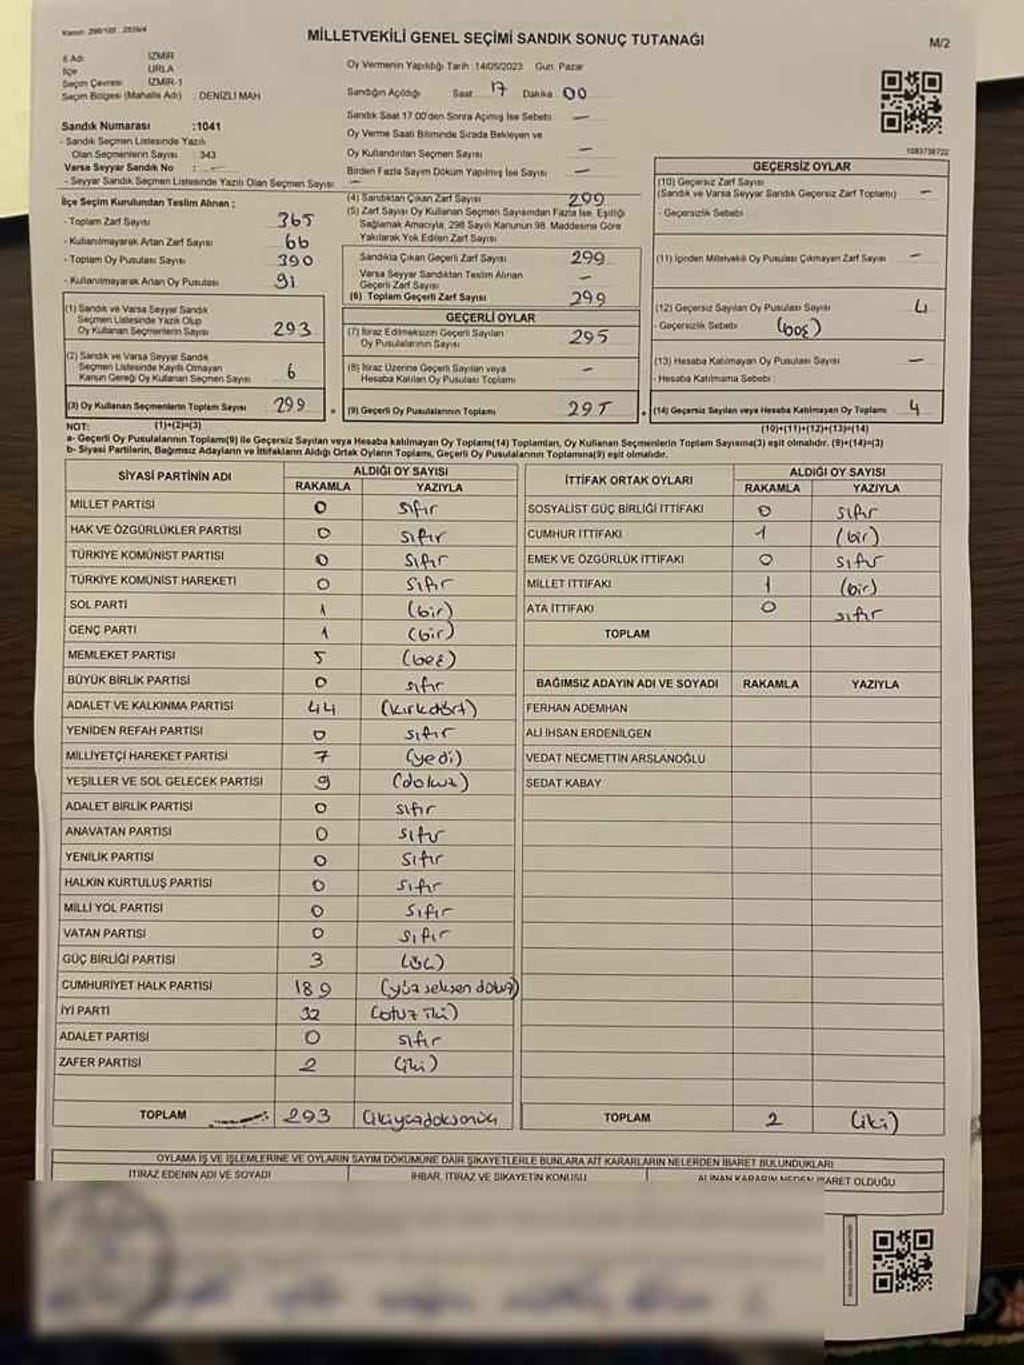 MİLLETVEKİLİ GENEL SEÇİMİ SANDIK SONUÇ TUTANAĞI
M/2
İl Adı İZMİR
İlçe URLA
Seçim Çevresi İZMİR-1
Seçim Bölgesi (Mahalle Adı) : DENİZLİ MAH
Sandık Numarası :1041
- Sandık Seçmen Listesinde Yazılı
Olan Seçmenlerin Sayısı : 343
Varsa Seyyar Sandık No : -
- Seyyar Sandık Seçmen Listesinde Yazılı Olan Seçmen Sayısı : -
Oy Vermenin Yapıldığı Tarih :14/05/2023 Gün: Pazar
Sandığın Açıldığı Saat 17 Dakika 00
Sandık Saat 17.00'den Sonra Açılmış İse Sebebi -
Oy Verme Saati Bitiminde Sırada Bekleyen ve
Oy Kullandırılan Seçmen Sayısı -
Birden Fazla Sayım Döküm Yapılmış İse Sayısı -
1083738722
İlçe Seçim Kurulundan Teslim Alınan ;
- Toplam Zarf Sayısı 365
- Kullanılmayarak Artan Zarf Sayısı 66
- Toplam Oy Pusulası Sayısı 390
- Kullanılmayarak Artan Oy Pusulası 91
(1) Sandık ve Varsa Seyyar Sandık
Seçmen Listesinde Yazılı Olup
Oy Kullanan Seçmenlerin Sayısı 293
(2) Sandık ve Varsa Seyyar Sandık
Seçmen Listesinde Kayıtlı Olmayan
Kanun Gereği Oy Kullanan Seçmen Sayısı 6
(3) Oy Kullanan Seçmenlerin Toplam Sayısı 299
(4) Sandıktan Çıkan Zarf Sayısı 299
(5) Zarf Sayısı Oy Kullanan Seçmen Sayısından Fazla İse, Eşitliği
Sağlamak Amacıyla, 298 Sayılı Kanunun 98. Maddesine Göre
Yakılarak Yok Edilen Zarf Sayısı
Sandıkta Çıkan Geçerli Zarf Sayısı 299
Varsa Seyyar Sandıktan Teslim Alınan
Geçerli Zarf Sayısı -
(6) Toplam Geçerli Zarf Sayısı 299
GEÇERLİ OYLAR
(7) İtiraz Edilmeksizin Geçerli Sayılan
Oy Pusulalarının Sayısı 295
(8) İtiraz Üzerine Geçerli Sayılan veya
Hesaba Katılan Oy Pusulası Toplamı -
(9) Geçerli Oy Pusulalarının Toplamı 295
GEÇERSİZ OYLAR
(10) Geçersiz Zarf Sayısı
(Sandık ve Varsa Seyyar Sandık Geçersiz Zarf Toplamı) -
- Geçersizlik Sebebi
(11) İçinden Milletvekili Oy Pusulası Çıkmayan Zarf Sayısı -
(12) Geçersiz Sayılan Oy Pusulası Sayısı 4
- Geçersizlik Sebebi (boş)
(13) Hesaba Katılmayan Oy Pusulası Sayısı -
- Hesaba Katılmama Sebebi :
(14) Geçersiz Sayılan veya Hesaba Katılmayan Oy Toplamı 4
NOT: (1)+(2)=(3) (10)+(11)+(12)+(13)=(14)
a- Geçerli Oy Pusulalarının Toplamı(9) ile Geçersiz Sayılan veya Hesaba katılmayan Oy Toplamı(14) Toplamları, Oy Kullanan Seçmenlerin Toplam Sayısına(3) eşit olmalıdır. (9)+(14)=(3)
b- Siyasi Partilerin, Bağımsız Adayların ve İttifakların Aldığı Ortak Oyların Toplamı, Geçerli Oy Pusulalarının Toplamına(9) eşit olmalıdır.
SİYASİ PARTİNİN ADI ALDIĞI OY SAYISI
RAKAMLA YAZIYLA
MİLLET PARTİSİ 0 sıfır
HAK VE ÖZGÜRLÜKLER PARTİSİ 0 sıfır
TÜRKİYE KOMÜNİST PARTİSİ 0 sıfır
TÜRKİYE KOMÜNİST HAREKETİ 0 sıfır
SOL PARTİ 1 (bir)
GENÇ PARTİ 1 (bir)
MEMLEKET PARTİSİ 5 (beş)
BÜYÜK BİRLİK PARTİSİ 0 sıfır
ADALET VE KALKINMA PARTİSİ 44 (kırkdört)
YENİDEN REFAH PARTİSİ 0 sıfır
MİLLİYETÇİ HAREKET PARTİSİ 7 (yedi)
YEŞİLLER VE SOL GELECEK PARTİSİ 9 (dokuz)
ADALET BİRLİK PARTİSİ 0 sıfır
ANAVATAN PARTİSİ 0 sıfır
YENİLİK PARTİSİ 0 sıfır
HALKIN KURTULUŞ PARTİSİ 0 sıfır
MİLLİ YOL PARTİSİ 0 sıfır
VATAN PARTİSİ 0 sıfır
GÜÇ BİRLİĞİ PARTİSİ 3 (üç)
CUMHURİYET HALK PARTİSİ 189 (yüz seksen dokuz)
İYİ PARTİ 32 (otuz iki)
ADALET PARTİSİ 0 sıfır
ZAFER PARTİSİ 2 (iki)
TOPLAM 293 (ikiyüzdoksanüç)
İTTİFAK ORTAK OYLARI ALDIĞI OY SAYISI
RAKAMLA YAZIYLA
SOSYALİST GÜÇ BİRLİĞİ İTTİFAKI 0 sıfır
CUMHUR İTTİFAKI 1 (bir)
EMEK VE ÖZGÜRLÜK İTTİFAKI 0 sıfır
MİLLET İTTİFAKI 1 (bir)
ATA İTTİFAKI 0 sıfır
TOPLAM
BAĞIMSIZ ADAYIN ADI VE SOYADI RAKAMLA YAZIYLA
FERHAN ADEMHAN
ALİ İHSAN ERDENİLGEN
VEDAT NECMETTİN ARSLANOĞLU
SEDAT KABAY
TOPLAM 2 (iki)
OYLAMA İŞ VE İŞLEMLERİNE VE OYLARIN SAYIM DÖKÜMÜNE DAİR ŞİKAYETLERLE BUNLARA AİT KARARLARIN NELERDEN İBARET BULUNDUKLARI
İTİRAZ EDENİN ADI VE SOYADI İHBAR, İTİRAZ VE ŞİKAYETİN KONUSU ALINAN KARARIN NEDEN İBARET OLDUĞU